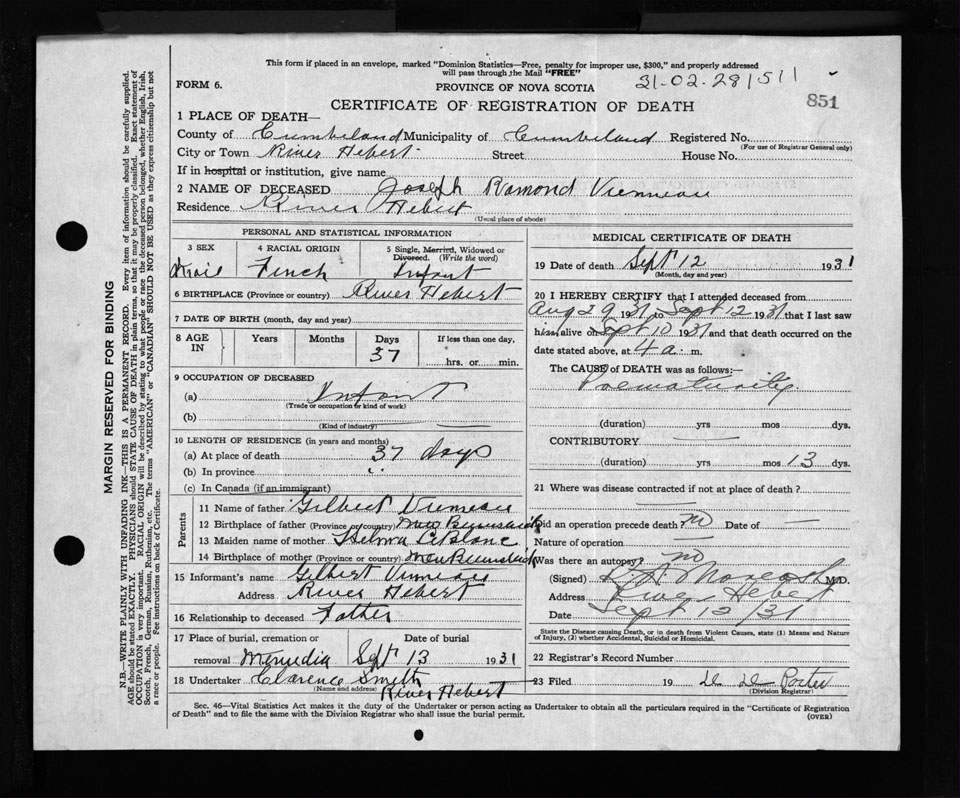 This form if placed in an envelope, marked "Dominion Statistics—Free, penalty for improper use, $300," and properly addressed
will pass through the Mail "FREE"
FORM 6.
PROVINCE OF NOVA SCOTIA
31-02-28 1511
851
CERTIFICATE OF REGISTRATION OF DEATH
1 PLACE OF DEATH—
County of Cumberland Municipality of Cumberland Registered No.
(For use of Registrar General only)
City or Town River Hebert Street House No.
If in hospital or institution, give name
2 NAME OF DECEASED Joseph Ramond Vienneau
Residence River Hebert
(Usual place of abode)
PERSONAL AND STATISTICAL INFORMATION
3 SEX
4 RACIAL ORIGIN
5 Single, Married, Widowed or
Divorced. (Write the word)
Male French Infant
6 BIRTHPLACE (Province or country) River Hebert
7 DATE OF BIRTH (month, day and year)
8 AGE IN
Years Months Days If less than one day,
37
hrs. or min.
9 OCCUPATION OF DECEASED
(a) Infant
(Trade or occupation or kind of work)
(b)
(Kind of industry)
10 LENGTH OF RESIDENCE (in years and months)
(a) At place of death 37 days
(b) In province "
(c) In Canada (if an immigrant)
Parents
11 Name of father Gilbert Vienneau
12 Birthplace of father (Province or country) New Brunswick
13 Maiden name of mother Thelma LeBlanc
14 Birthplace of mother (Province or country) New Brunswick
15 Informant's name Gilbert Vienneau
Address River Hebert
16 Relationship to deceased Father
17 Place of burial, cremation or Date of burial
removal Minudie Sept 13 1931
18 Undertaker Clarence Smith
(Name and address) River Hebert
MEDICAL CERTIFICATE OF DEATH
19 Date of death Sept 12 1931
(Month, day and year)
20 I HEREBY CERTIFY that I attended deceased from
Aug 29 1931 to Sept 12 1931 that I last saw
him alive on Sept 10 1931 and that death occurred on
date stated above, at 4 a. m.
The CAUSE OF DEATH was as follows:—
Prematurity
(duration) yrs mos dys.
CONTRIBUTORY
(duration) yrs mos 13 dys.
21 Where was disease contracted if not at place of death?
Did an operation precede death? no Date of —
Nature of operation —
Was there an autopsy? no
(Signed) M.D.
Address River Hebert
Date Sept 12/31
State the Disease causing Death, or in death from Violent Causes, state (1) Means and Nature
of Injury, (2) whether Accidental, Suicidal or Homicidal.
22 Registrar's Record Number
23 Filed 19 Porter
(Division Registrar)
Sec. 46—Vital Statistics Act makes it the duty of the Undertaker or person acting as Undertaker to obtain all the particulars required in the "Certificate of Registration
of Death" and to file the same with the Division Registrar who shall issue the burial permit.
(OVER)
MARGIN RESERVED FOR BINDING
N.B.—WRITE PLAINLY WITH UNFADING INK—THIS IS A PERMANENT RECORD. Every item of information should be carefully supplied.
AGE should be stated EXACTLY. PHYSICIANS should STATE CAUSE OF DEATH in plain terms, so that it may be properly classified. Exact statement of
OCCUPATION is very important. RACIAL ORIGIN will be described by stating to what people or race the deceased person belonged, whether English, Irish,
Scotch, French, German, Russian, Ruthenian, etc. The terms "AMERICAN" or "CANADIAN" SHOULD NOT BE USED as they express citizenship but not
a race or people. Fee instructions on back of Certificate.